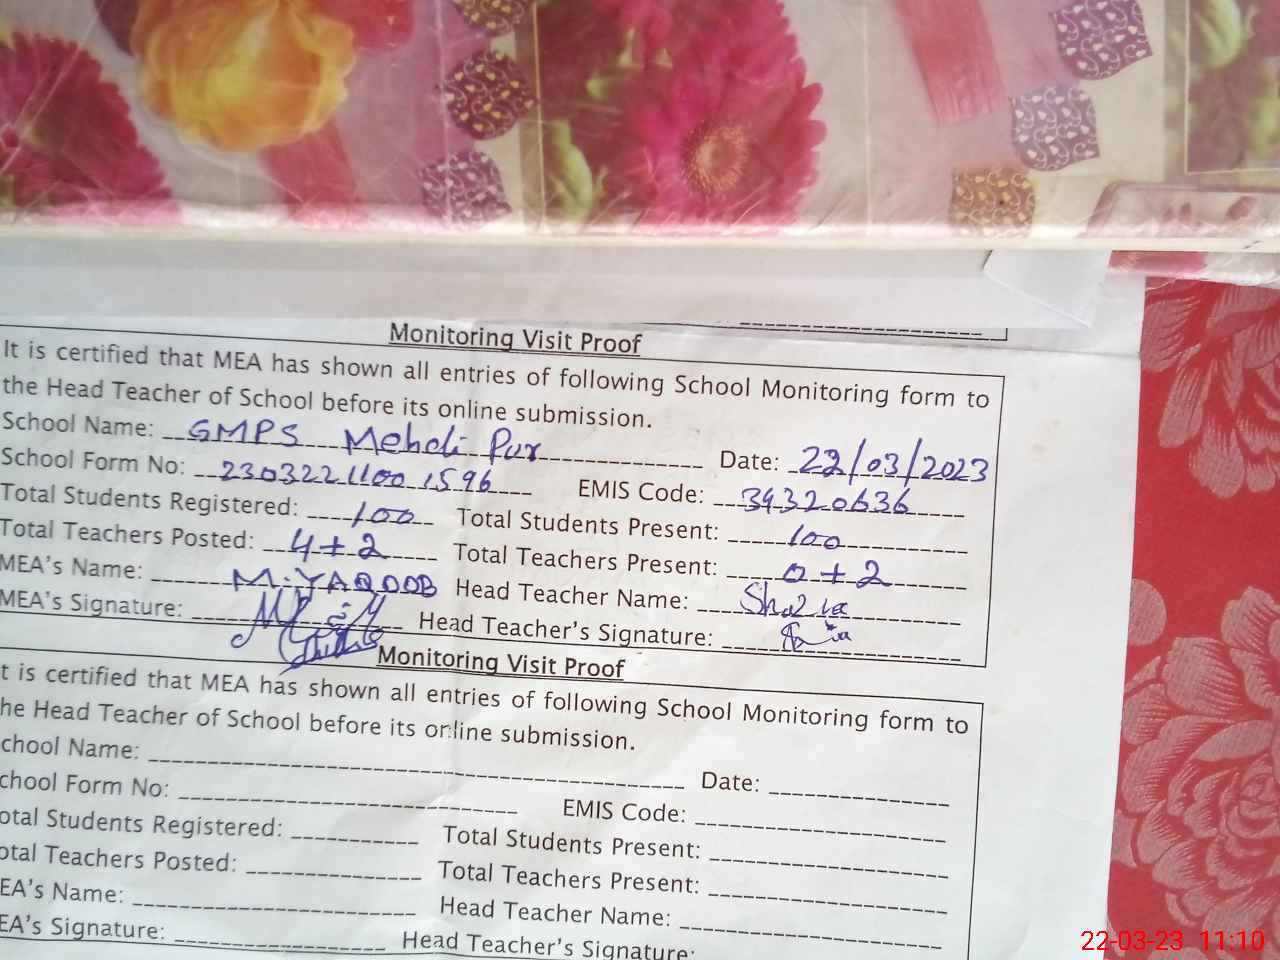 Monitoring Visit Proof
It is certified that MEA has shown all entries of following School Monitoring form to
the Head Teacher of School before its online submission.
School Name: GMPS Mehdi Pur Date: 22/03/2023
School Form No: 2303221100 1596 EMIS Code: 39320636
Total Students Registered: 100 Total Students Present: 100
Total Teachers Posted: 4+2 Total Teachers Present: 0+2
MEA's Name: M.YAQOOB Head Teacher Name: Shazia
MEA's Signature: Head Teacher's Signature:
Monitoring Visit Proof
t is certified that MEA has shown all entries of following School Monitoring form to
he Head Teacher of School before its online submission.
chool Name: Date:
chool Form No: EMIS Code:
otal Students Registered: Total Students Present:
otal Teachers Posted: Total Teachers Present:
EA's Name: Head Teacher Name:
EA's Signature: Head Teacher's Signature:
22-03-23 11:10